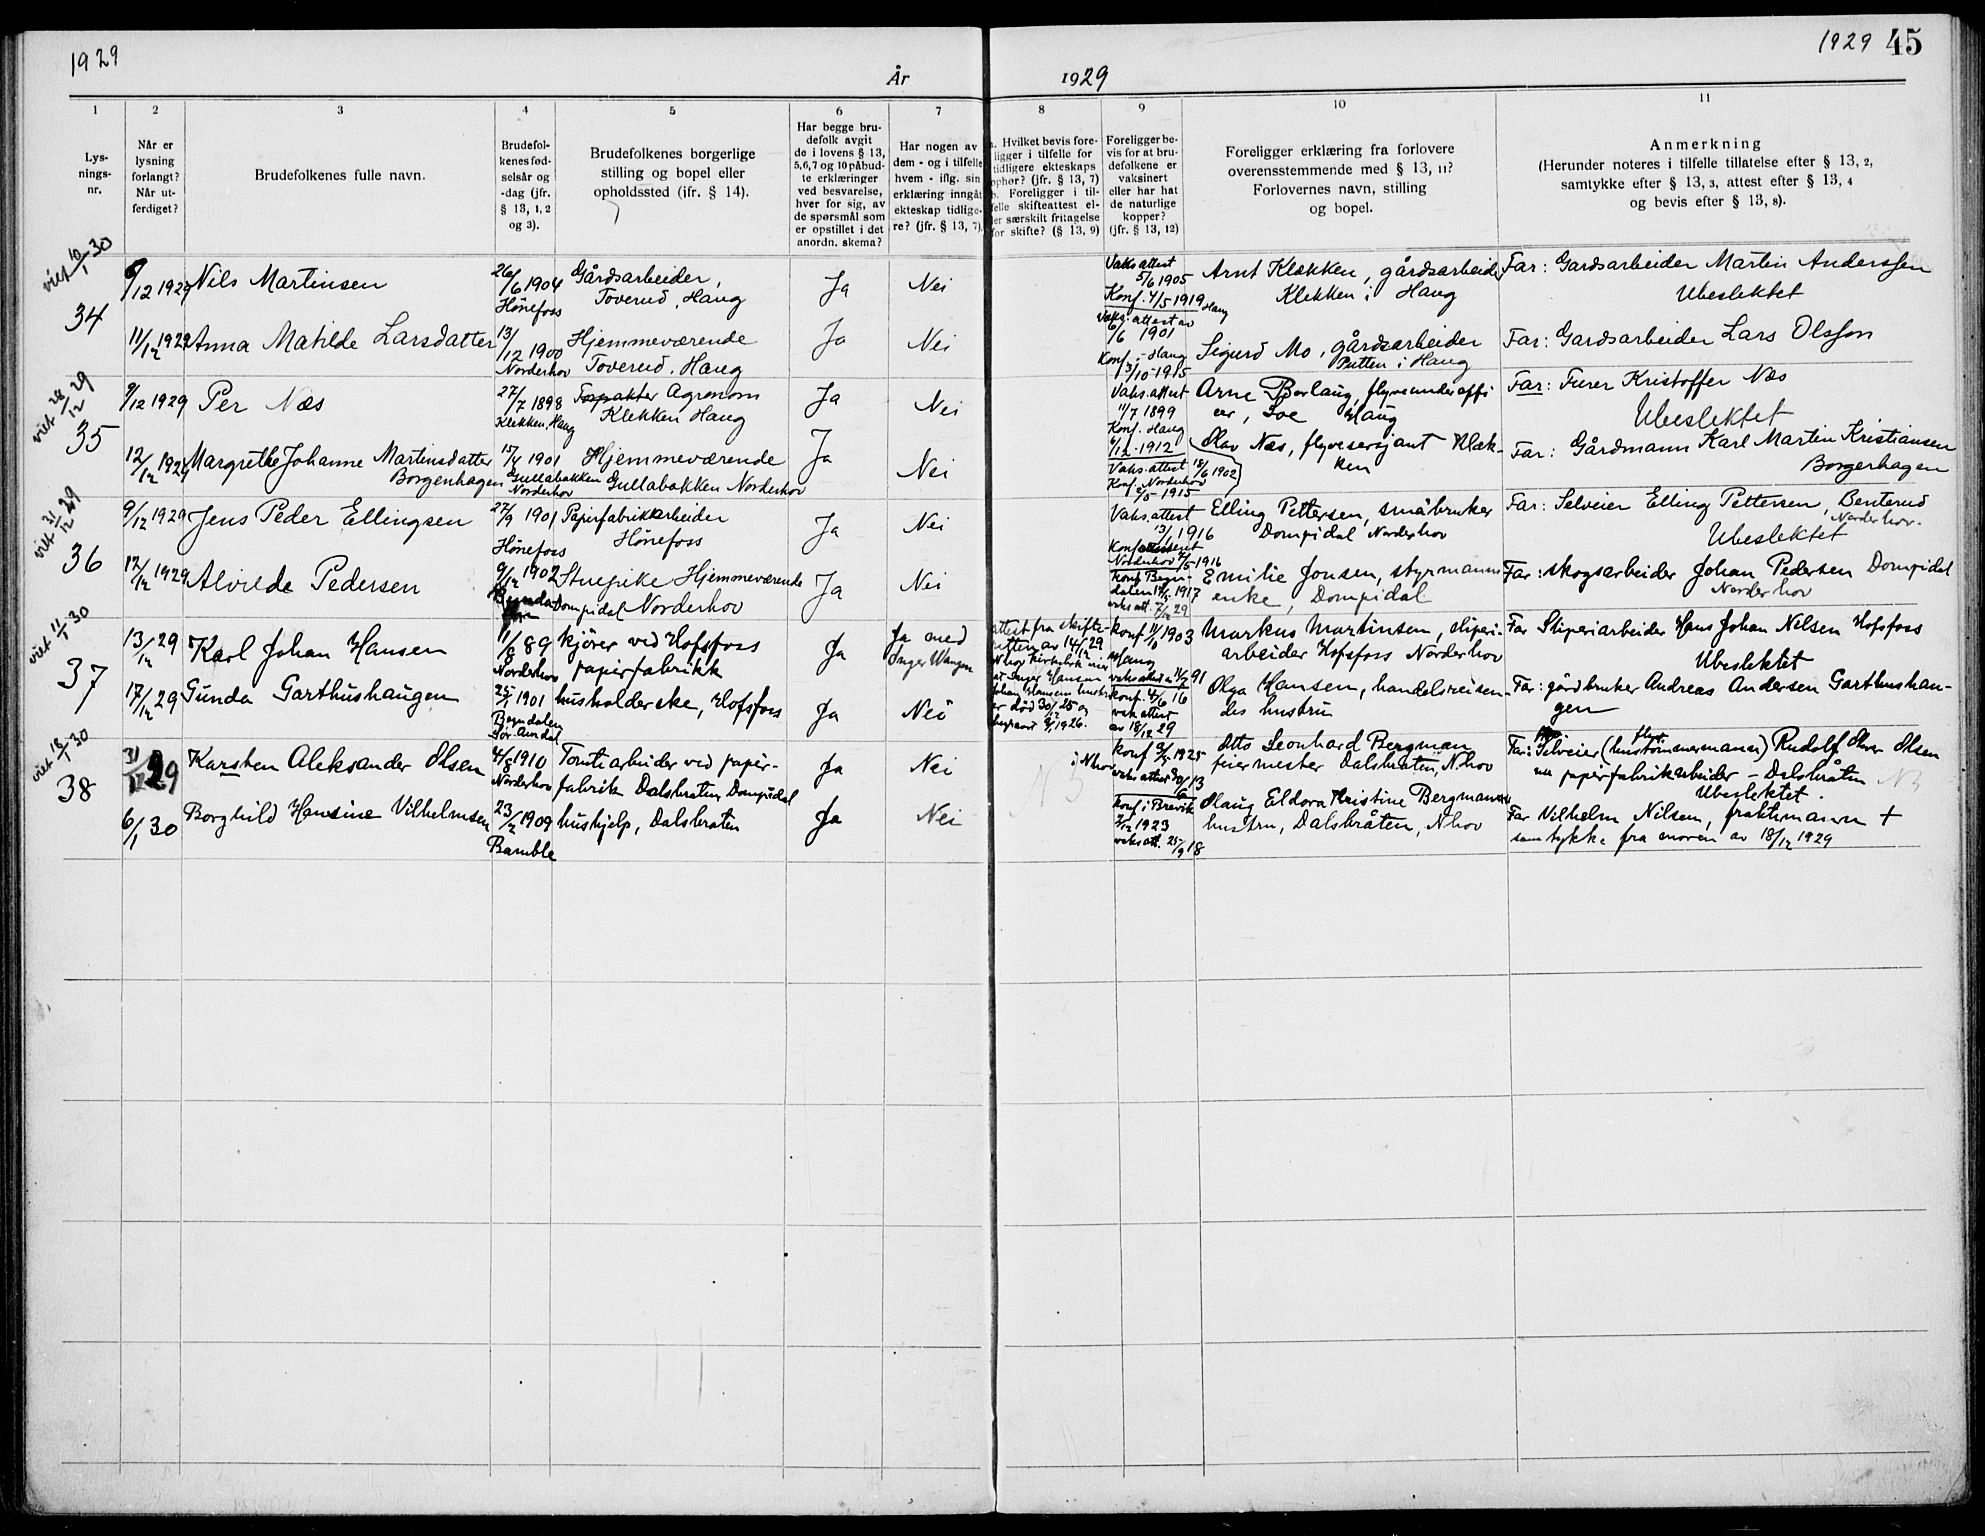 1929
1929 45
År 1929
1
2
3
4
5
6
7
8
9
10
11
Lys-
nings-
nr.
Når er
lysning
forlangt?
Når ut-
ferdiget?
Brudefolkenes fulle navn.
Brudefol-
kenes fød-
selsår og
-dag (jfr.
§ 13, 1, 2
og 3).
Brudefolkenes borgerlige
stilling og bopel eller
opholdssted (ifr. § 14).
Har begge bru-
defolk avgit
de i lovens § 13,
5,6,7 og 10 påbud-
te erklæringer
ved besvarelse,
hver for sig, av
de spørsmål som
er opstillet i det
anordn. skema?
Har nogen av
dem - og i tilfelle
hvem - iflg. sin
erklæring inngåt
ekteskap tidlige-
re? (jfr. § 13, 7).
a. Hvilket bevis fore-
ligger i tilfelle for
tidligere ekteskaps
ophør? (jfr. § 13, 7)
b. Foreligger i til-
felle skifteattest el-
ler særskilt fritagelse
for skifte? (§ 13, 9)
Foreligger be-
vis for at bru-
defolkene er
vaksinert
eller har hat
de naturlige
kopper?
(jfr. § 13, 12)
Foreligger erklæring fra forlovere
overensstemmende med § 13, 11?
Forlovernes navn, stilling
og bopel.
Anmerkning
(Herunder noteres i tilfelle tillatelse efter § 13, 2,
samtykke efter § 13, 3, attest efter § 13, 4
og bevis efter § 13, 8).
viet 10/1 30
34
9/12 1929
Nils Martinsen
26/6 1904
Hønefoss
Gårdsarbeider,
Toverud, Haug
Ja
Nei
Vaks attest
5/6 1905
Konf. 4/5 1919 Haug
Arnt Klækken, gårdsarbeider
Klekken i Haug
Far: Gardsarbeider Martin Anderssen
Ubeslektet
11/12 1929
Anna Matilde Larsdatter
13/12 1900
Norderhov
Hjemmeværende
Toverud, Haug
Ja
Nei
Vaks. attest av
6/6 1901
Konf. Haug
3/10 1915
Sigurd Mo, gårdsarbeider
Putten i Haug
Far: Gardsarbeider Lars Olsson
viet 28/12 29
35
9/12 1929
Per Næs
27/7 1898
Klekken, Haug
Agronom
Klekken, Haug
Ja
Nei
Vaks. attest
11/7 1899
Konf. Haug
1912
Arne Borlaug, flyveunderoffi
cer, Loe Haug
Far: Furer Kristoffer Næs
Ubeslektet
12/12 1929
Margrethe Johanne Martinsdatter
Borgenhagen
15/4 1901
Gullabakken
Norderhov
Hjemmeværende
Gullabakken Norderhov
Ja
Nei
Vaks. attest 18/6 1902
Konf. Norderhov
1915
Olav Næs, flyvesersjant Klæk-
ken
Far: Gårdmann Karl Martin Kristiansen
Borgerhagen
viet 31/12 29
36
9/12 1929
Jens Peder Ellingsen
27/9 1901
Hønefoss
Papirfabrikkarbeider
Hönefoss
Ja
Nei
Vaks. attest
13/1 1916
Konfirmeret
Norderhov 1916
Elling Pettersen, småbruker
Dompidal Norderhov
Far: Selveier Elling Pettersen, Benterud
Norderhov.
Ubeslektet
17/12 1929
Alvilde Pedersen
9/12 1902
Stuepike Hjemmeværende
Dompidal Norderhov
Ja
Nei
Konf. Begn-
dalen 1917
vaks att. 7/12 29
Emilie Jonsen, styrmanns
enke, Dompidal
Far: skogsarbeider Johan Pedersen Dompidal
Norderhov
viet 11/1 30
37
13/12 29
Karl Johan Hansen
11/8 89
Norderhov
kjører ved Hofsfoss
papirfabrikk
Ja
Ja med
Inger Wangen
attest fra skifte-
retten av 14/12 29.
Johan Hansens hustru
er død 30/12 25 og
begravet 1926.
konf 11/10 1903
Haug
Markus Martinsen, sliperi-
arbeider Hofsfoss Norderhov
Far Sliperiarbeider Hans Johan Nilsen Hofsfoss
Ubeslektet
17/12 29
Gunda Garthushaugen
25/1 1901
Begndalen
Sør Aurdal
husholderske, Hofsfoss
Ja
Nei
konf. 4/6 16
vaks attest
av 18/12 29
Olga Hansen, handelsreisen-
des hustru
Far: gårdbruker Andreas Andersen Garthushau-
gen
viet 18/1 30
38
31/12 29
Karsten Aleksander Olsen
4/8 1910
Norderhov
Tomtearbeider ved papir-
fabrik Dalsbråten, Dompidal
Ja
Nei
i Nhov
konf 1925
vaks attest 30/6 13
Otto Leonhard Bergman
feiermester Dalsbråten, Nhov
Far: Selveier (hustømmermann) Rudolf Olsen
nu papirfabrikarbeider - Dalsbråten
Ubeslektet.
6/1 30
Borghild Hansine Vilhelmsen
23/2 1909
Bamble
hushjelp, Dalsbraten
Ja
Nei
konf i Brevik
1923
vaks att. 25/9 18
Olaug Eldora Kristine Bergmann
hustru, Dalsbråten, Nhov
Far Vilhelm Nilsen, fraktemann +
samtykke fra moren av 18/12 1929